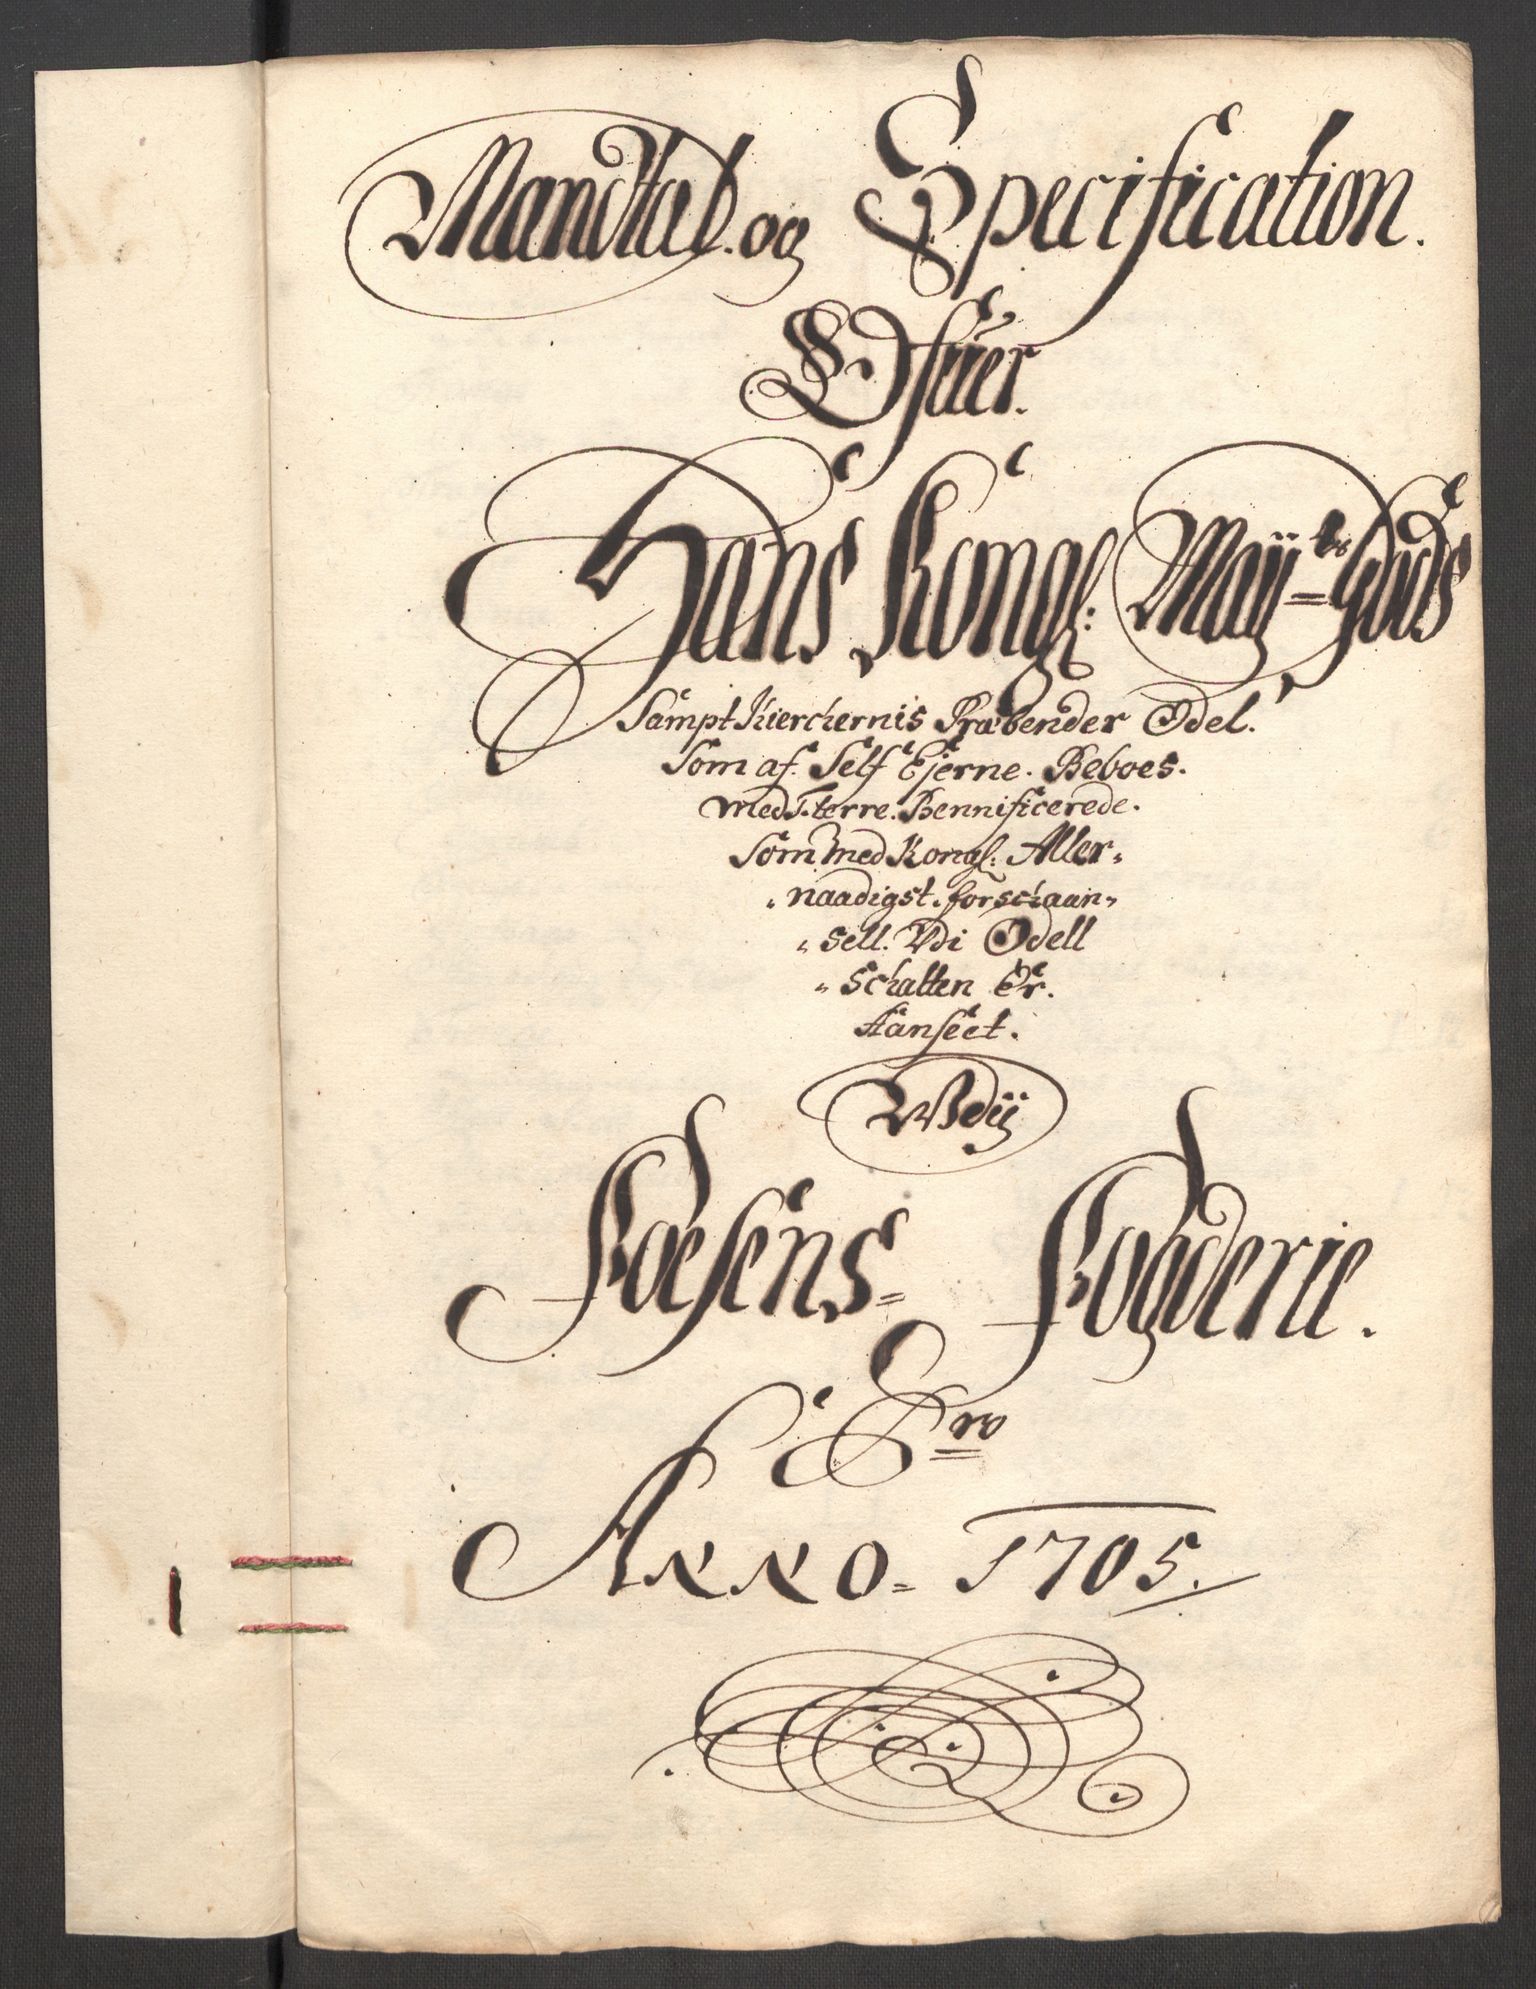 Mandtal og Specification.
Ofuer.
Hans Kongl: May=ts Gods
Sampt Kierchernis Præbender Odel.
Som af. Self Ejerne. Beboes.
med Bennificerede.
Som med Kongl: Aller„
„naadigst. forschaan„
„sell. Vdi Odell
„Schatten Er.
Aanseet.
Vdij
Foesens= Fogderie.
Pro
Anno= 1705.